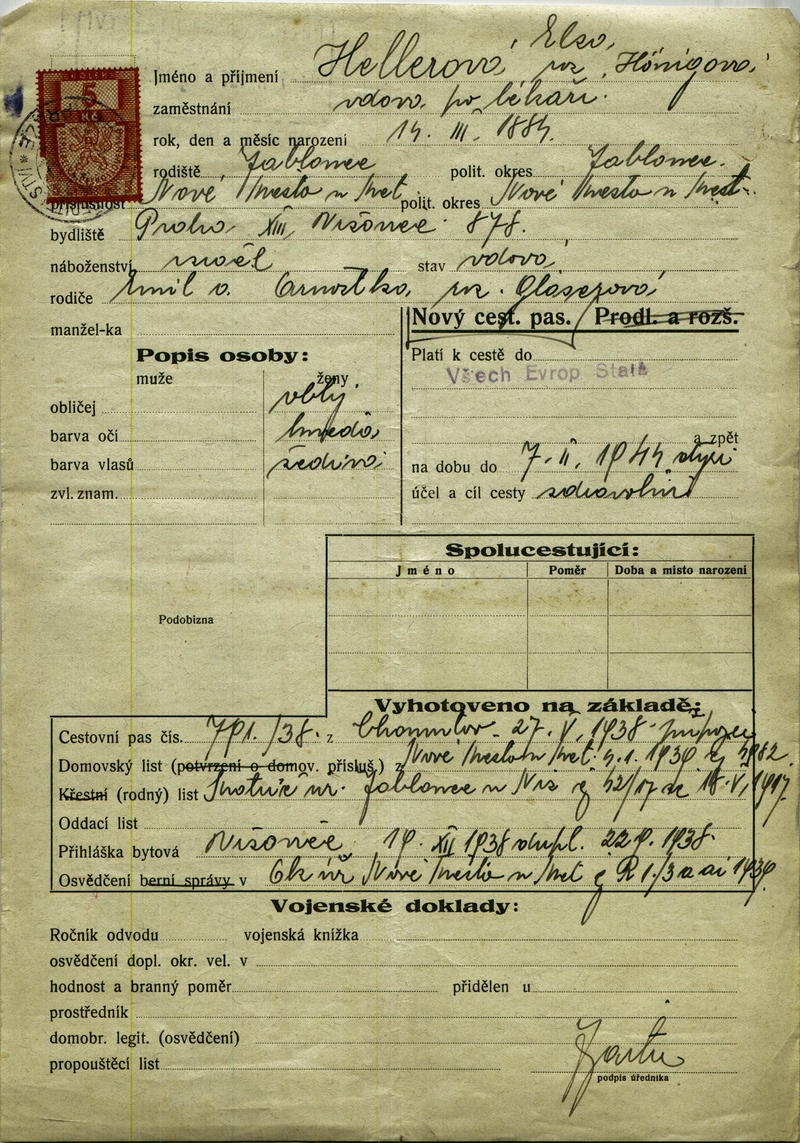 5
Kč
Jméno a příjmení Hellerová Elsa, roz. Hönigová,
zaměstnání vdova po lékaři.
rok, den a měsíc narození 14. III. 1884.
rodiště Jablonec polit. okres Jablonec.
příslušnost Nové Město n Met. polit. okres Nové Město n Met.
bydliště Praha XIII, Vršovice 878.
náboženství israel stav vdova,
rodiče Emil a Arnoštka, roz. Glaserová,
manžel-ka
Nový cest. pas. Prodl. a rozš.
Popis osoby:
muže ženy
Platí k cestě do
Všech Evrop Států
obličej oblý,
barva očí hnědá,
barva vlasů šedivá
zvl. znam.
a zpět
na dobu do 7. II. 1944
účel a cíl cesty zdravotní
Spolucestující:
Jméno Poměr Doba a misto narození
Podobizna
Vyhotoveno na základě:
Cestovní pas čís. 791./38. z Chomutov 27. V. 1938
Domovský list (potvrzení o domov. přísluš.) z Nové Město n Met. 1939 čj 382.
Křestní (rodný) list Matrič. úř. Jablonec n Nis čj 42/17 ze 18. V. 1917.
Oddací list
Přihláška bytová Vršovice, 19. XII 1938
Osvědčení berní správy v Ok úř Nové Město n Met čj 1939.
Vojenské doklady:
Ročník odvodu vojenská knížka
osvědčení dopl. okr. vel. v
hodnost a branný poměr přidělen u
prostředník
domobr. legit. (osvědčení)
propouštěcí list
podpis úředníka